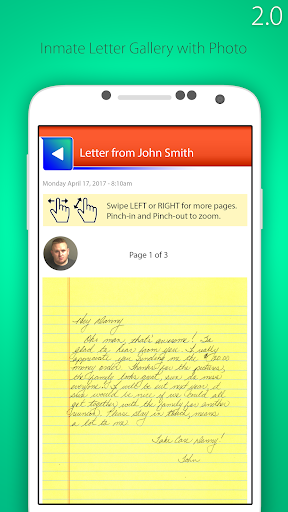 2.0
Inmate Letter Gallery with Photo
Letter from John Smith
Monday April 17, 2017 - 8:10am
Swipe LEFT or RIGHT for more pages.
Pinch-in and Pinch-out to zoom.
Page 1 of 3
Hey Danny
Ohh man, that's awesome! So
glad to hear from you. I really
appreciate you sending me the
money order. Thanks for the pictures,
the family looks great, sure do miss
everyone. I will be out next year, it
sure would be nice if we could all
get together with the family for another
reunion. Please stay in touch, means
a lot to me
Take Care Danny!
John